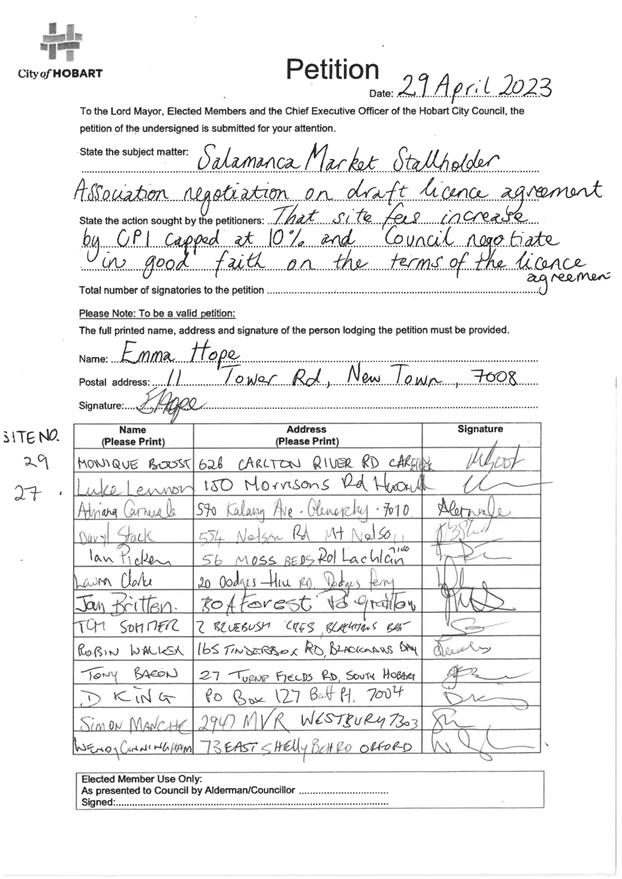 City of HOBART
Petition
Date: 29 April 2023
To the Lord Mayor, Elected Members and the Chief Executive Officer of the Hobart City Council, the
petition of the undersigned is submitted for your attention.
State the subject matter: Salamanca Market Stallholder
Association negotiation on draft licence agreement
State the action sought by the petitioners: That site fees increase
by CPI capped at 10% and Council negotiate
in good faith on the terms of the licence
agreemen
Total number of signatories to the petition
Please Note: To be a valid petition:
The full printed name, address and signature of the person lodging the petition must be provided.
Name: Emma Hope
Postal address: 11 Tower Rd, New Town, 7008
Signature: EHope
SITE NO. Name Address Signature
(Please Print) (Please Print)
29 MONIQUE 626 CARLTON RIVER RD
27 Luke Lennon 150 Morrisons Rd
Adriana 590 Kalang Ave - Glenorchy - 7010
Daryl Stack 554 Nelson Rd Mt Nelson
Ian Picken 56 MOSS BEDS Rd Lachlan 7140
Laura Clarke 20 Dodges Hill RD, Dodges ferry
Jan Britten. Forest Rd
TOM SOMMER 2 BLUEBUSH CRES, BLACKMANS BAY
ROBIN WALKER 165 TINDERBOX RD, BLACKMANS BAY
TONY BACON 27 FIELDS RD, SOUTH HOBART
D KING PO Box 127 Batt Pt. 7004
SIMON 2947 MVR WESTBURY 7303
WENDY CUNNINGHAM 73 EAST SHELLY BCH RD ORFORD
Elected Member Use Only:
As presented to Council by Alderman/Councillor
Signed: